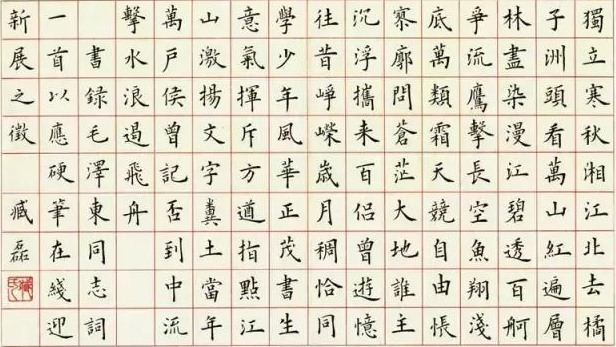 獨立寒秋湘江北去橘
子洲頭看萬山紅遍層
林盡染漫江碧透百舸
爭流鷹擊長空魚翔淺
底萬類霜天競自由悵
寥廓問蒼茫大地誰主
沉浮攜来百侣曾遊憶
往昔崢嶸歲月稠恰同
學少年風華正茂書生
意氣揮斥方遒指點江
山激揚文字糞土當年
萬户侯曾記否到中流
擊水浪遏飛舟
書録毛澤東同志詞
一首以應硬筆在綫迎
新展之徵 臧磊